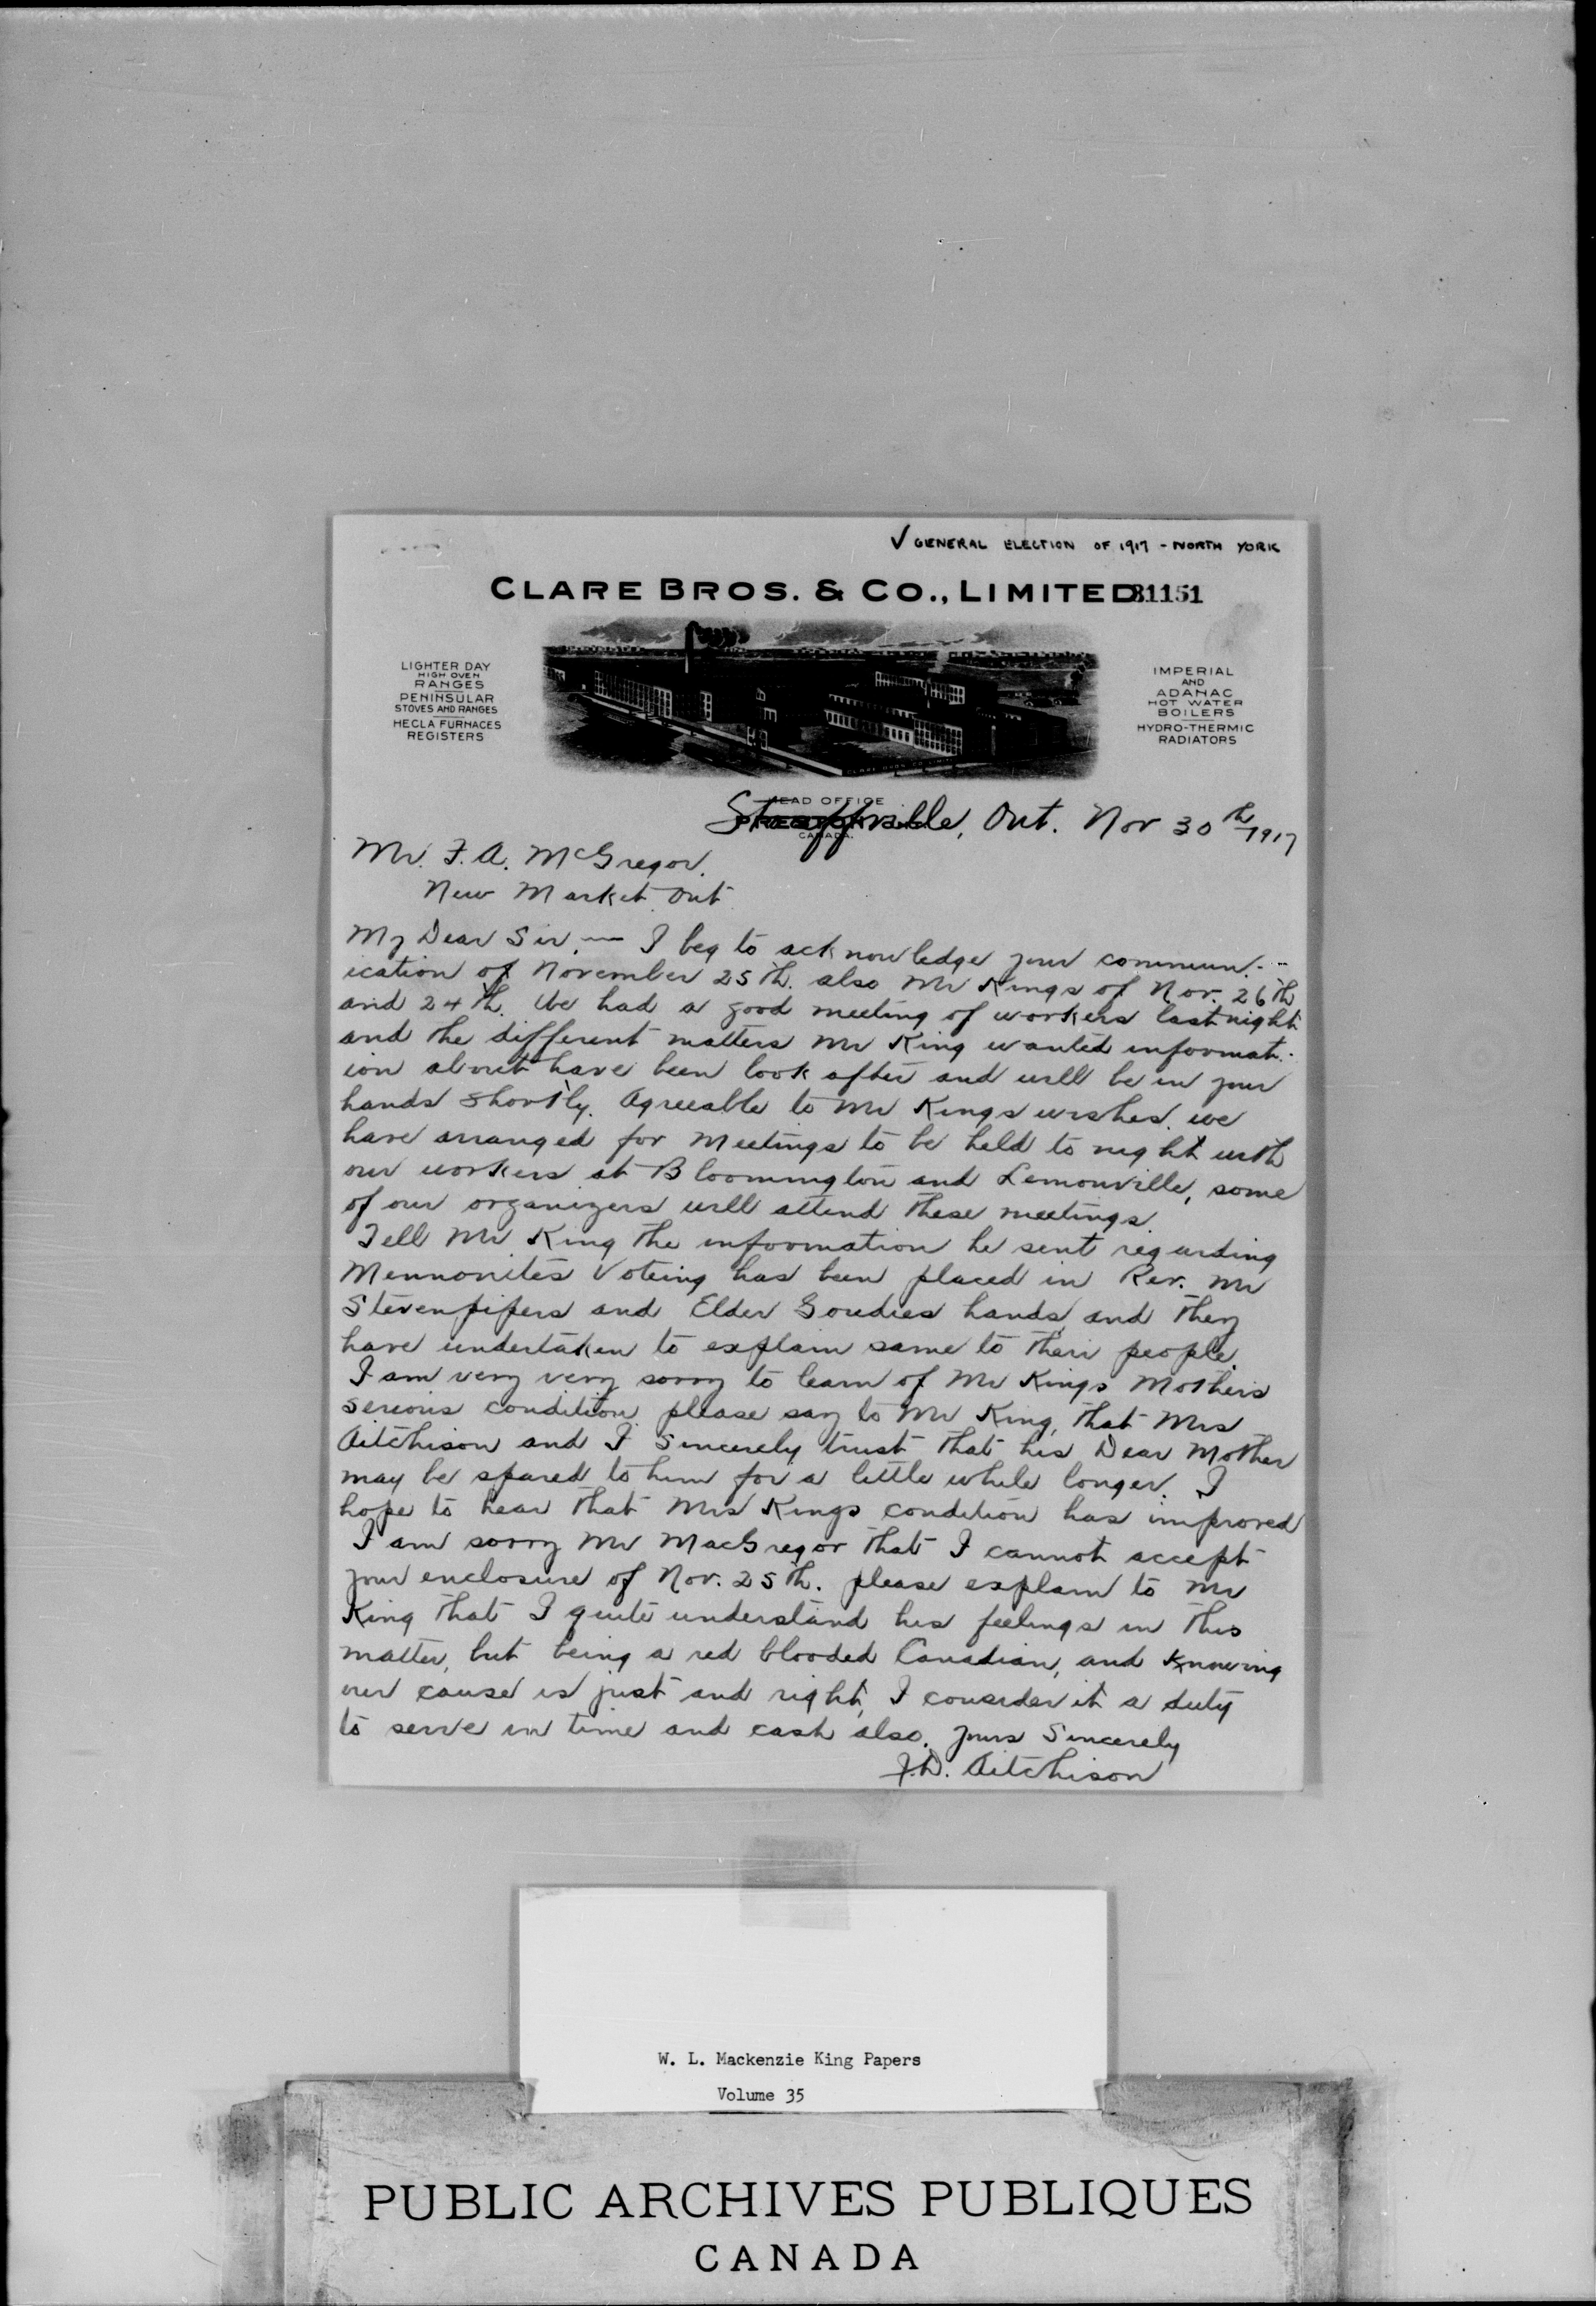 ✓ GENERAL ELECTION OF 1917 - NORTH YORK
CLARE BROS. & CO., LIMITED
31151
LIGHTER DAY
HIGH OVEN
RANGES
PENINSULAR
STOVES AND RANGES
HECLA FURNACES
REGISTERS
IMPERIAL
AND
ADANAC
HOT WATER
BOILERS
HYDRO-THERMIC
RADIATORS
HEAD OFFICE
PRESTON
CANADA.
Stouffville, Ont. Nov 30th 1917
Mr. F. A. McGregor.
New Market Ont
My Dear Sir, — I beg to acknowledge your commun.-
ication of November 25th. also Mr Kings of Nov. 26th
and 24th. We had a good meeting of workers last night
and the different matters Mr King wanted informat.-
ion about have been look after and will be in your
hands shortly. Agreeable to Mr Kings wishes. we
have arranged for meetings to be held to night with
our workers at Bloomington and Lemonville, some
of our organizers will attend these meetings.
Tell Mr King the information he sent regarding
Mennonites Voteing has been placed in Rev. Mr
Stevenpifers and Elder Goudies hands, and they
have undertaken to explain same to their people.
I am very very sorry to learn of Mr Kings Mothers
serious condition. please say to Mr King, that Mrs
Aitchison and I Sincerely trust that his Dear Mother
may be spared to him for a little while longer. I
hope to hear that Mrs Kings condition has improved
I am sorry Mr MacGregor that I cannot accept
your enclosure of Nov. 25th. please explain to Mr
King that I quite understand his feelings in this
matter, but being a red blooded Canadian, and Knowing
our cause is just and right, I consider it a duty
to serve in time and cash also. yours Sincerely
J.D. Aitchison
W. L. Mackenzie King Papers
Volume 35
PUBLIC ARCHIVES PUBLIQUES
CANADA